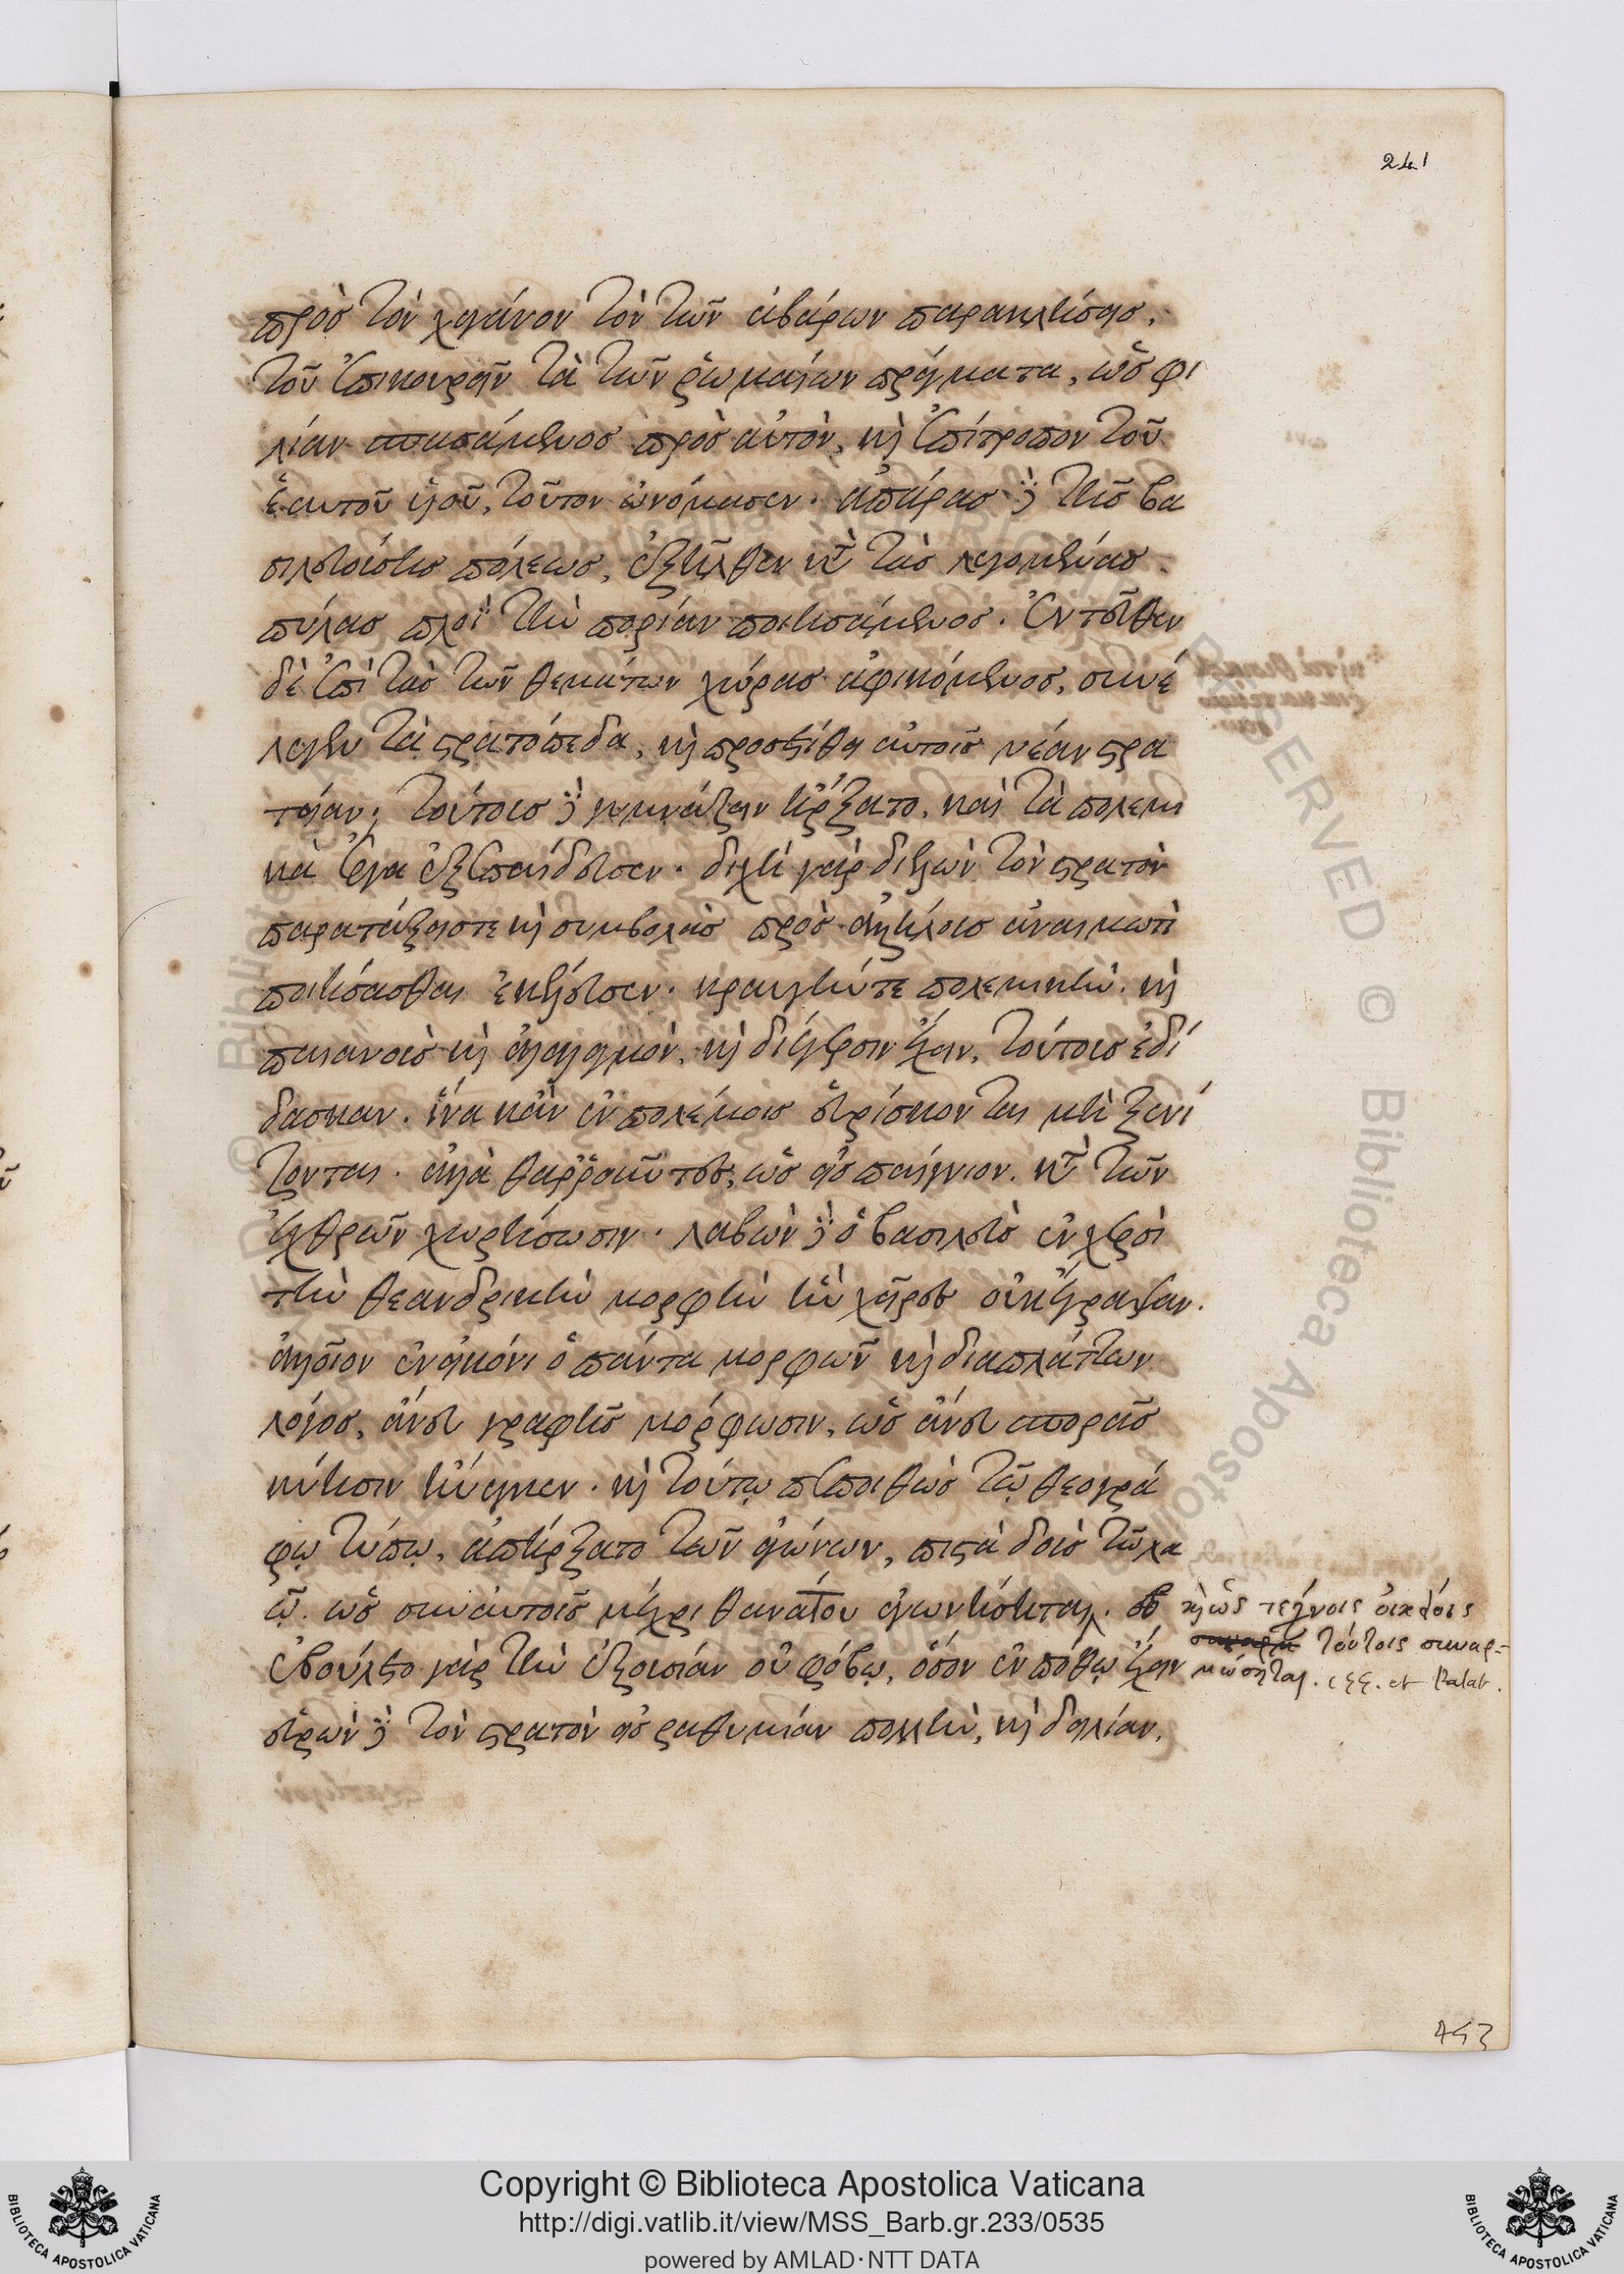 241
πρὸς τὸν χαγάνον τὸν τῶν ἀβάρων παρακλήσεις,
τοῦ ἐπικουρεῖν τὰ τῶν ῥωμαίων πράγματα, ὡς φι
λίαν σπασάμενος πρὸς αὐτὸν, καὶ ἐπίτροπον τοῦ
ἑαυτοῦ υἱοῦ, τοῦτον ὠνόμασεν. ἀπάρας δὲ τῆς βα
σιλευούσης πόλεως, ἐξῆλθεν κατὰ τὰς λεγομένας
πύλας πλοῒ τὴν πορείαν ποιησάμενος. ἐντεῦθεν
δὲ ἐπὶ τὰς τῶν θεμάτων χώρας ἀφικόμενος, συνέ
λεγεν τὰ στρατόπεδα, καὶ προσετίθει αὐτοῖς νέαν στρα
τείαν· τούτους δὲ γυμνάζειν ἤρξατο, καὶ τὰ πολεμι
κὰ ἔργα ἐξεπαίδευσεν. διχῆ γὰρ διελὼν τὸν στρατὸν
παρατάξεις τε καὶ συμβολὰς πρὸς ἀλλήλους ἀναιμωτὶ
ποιήσασθαι ἐκέλευσεν. κραυγήν τε πολεμικὴν. καὶ
παιάνας καὶ ἀλαλαγμὸν, καὶ διέγερσιν ἔχειν, τούτους ἐδί
δασκεν. ἵνα κἂν ἐν πολέμοις εὑρίσκονται μὴ ξενί
ζονται. ἀλλὰ θαρροῦντες, ὡς εἰς παίγνιον. κατὰ τῶν
ἐχθρῶν χωρήσωσιν. λαβὼν δὲ ὁ βασιλεὺς ἐν χερσὶ
τὴν θεανδρικὴν μορφὴν ἣν χεῖρες οὐκ ἔγραψαν.
ἀλλ' οἷον ἐν εἰκόνι ὁ πάντα μορφῶν καὶ διαπλάττων
λόγος, ἄνευ γραφῆς μόρφωσιν, ὡς ἄνευ σπορᾶς
κύησιν ἤνεγκεν. καὶ τούτῳ πεποιθὼς τῷ θεογρά
φῳ τύπῳ, ἀπήρξατο τῶν ἀγώνων, πιστὰ δοὺς τῷ λα
ῷ. ὡς σὺν αὐτοῖς μέχρι θανάτου ἀγωνίσηται.
καὶ ὡς τέκνοις οἰκείοις
τούτοις συναρ=
μώσηται. et Palat.
ἐβούλετο γὰρ τὴν ἐξουσίαν οὐ φόβῳ, ὅσον ἐν πόθῳ ἔχειν
εὑρὼν δὲ τὸν στρατὸν εἰς ῥαθυμίαν πολλὴν, καὶ δειλίαν,
453
Copyright © Biblioteca Apostolica Vaticana
http://digi.vatlib.it/view/MSS_Barb.gr.233/0535
powered by AMLAD·NTT DATA
BIBLIOTECA APOSTOLICA VATICANA
BIBLIOTECA APOSTOLICA VATICANA